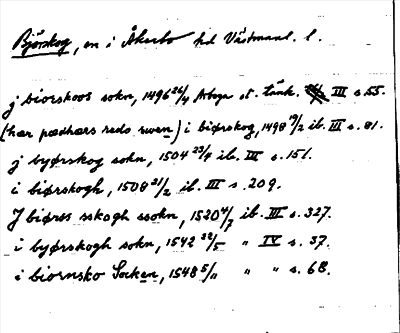 Björskog, sn i Åkerbo hd Västmanl. l.
j biorskoos sokn, 1496 26/4 Arboga st. tänk. III s. 55.
(har pædhars redo swen) i biørskog, 1498 19/2 ib. III s. 81.
j byørskog sokn, 1504 23/4 ib. III s. 151.
i biørskogh, 1508 21/2 ib. III s. 209.
J biørss skogh ssokn, 1520 4/7 ib. III s. 327.
i byørskogh sokn, 1542 22/5 " IV s. 37.
i biornsko Socken, 1548 5/11 " " s. 68.